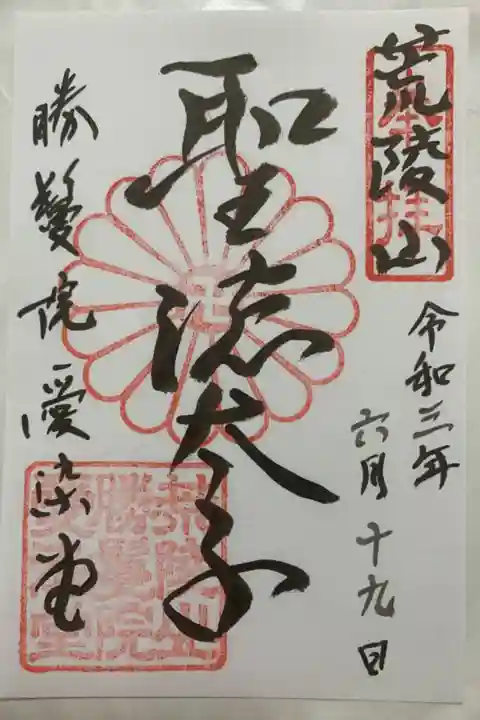 荒陵山
奉拝
令和三年
六月十九日
聖徳太子
勝鬘院愛染堂
荒陵山
勝鬘院
愛染堂